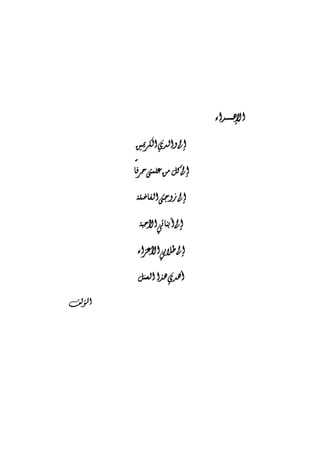 الإهداء
إلى والدي الكريمين
إلى كل من علمني حرفاً
إلى زوجتي الفاضلة
إلى أبنائي الأحبة
إلى طلابي الأعزاء
أهدي هذا العمل
المؤلف